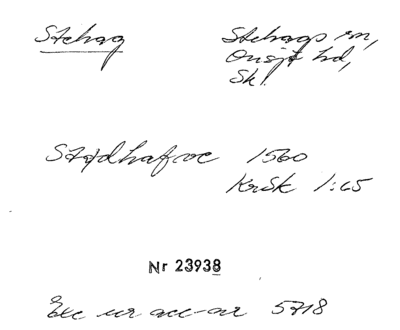 Stehag
Stehags sn,
Onsjö hd,
Sk.
Stødhafvæ 1560
KrSk 1:65
Nr 23938
Exc ur acc-nr 5718